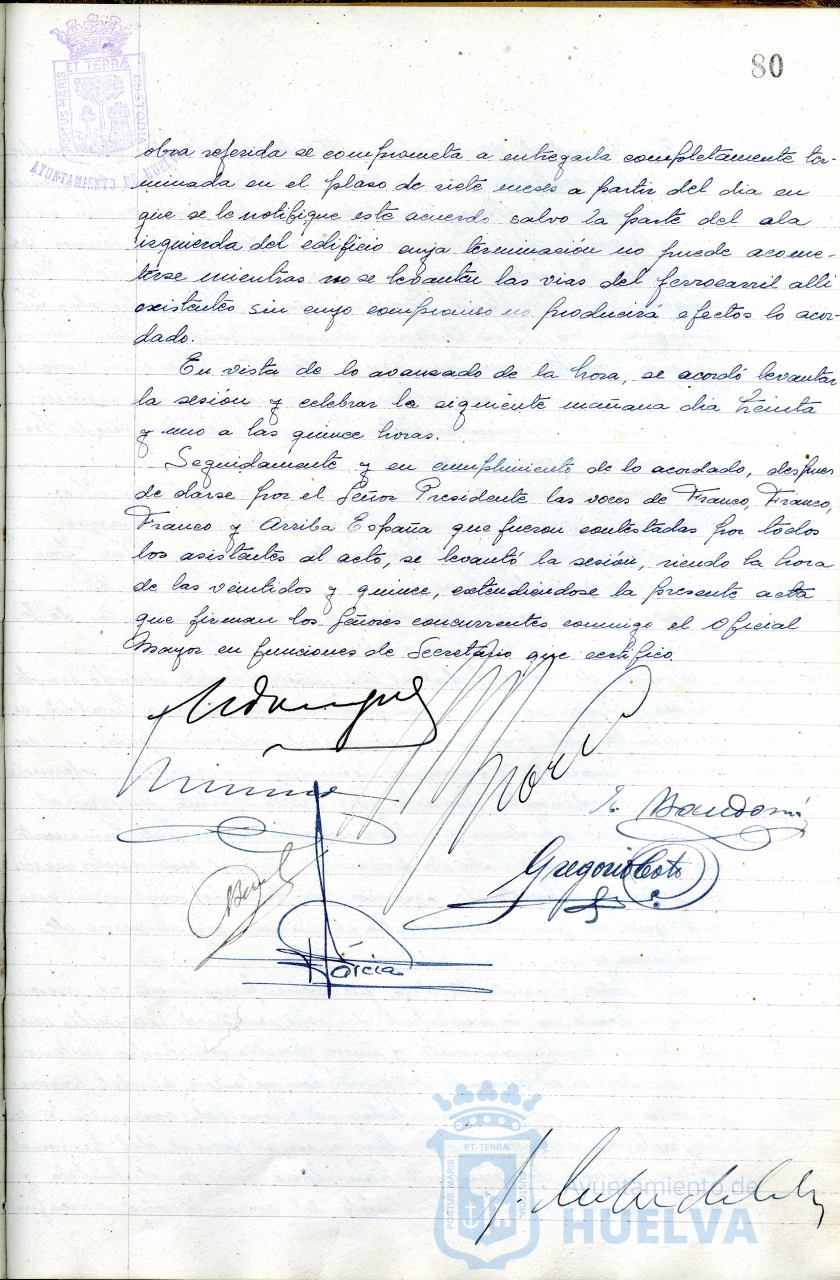 80
ET TERRÆ
PORTUS MARIS
CUSTODIA
AYUNTAMIENTO DE HUELVA
obra referida se comprometa a entregarla completamente ter-
minada en el plazo de siete meses a partir del dia en
que se le notifique este acuerdo salvo la parte del ala
izquierda del edificio cuya terminación no puede acome-
terse mientras no se levanten las vias del ferrocarril alli
existentes sin cuyo compromiso no producirá efectos lo acor-
dado.
En vista de lo avanzado de la hora, se acordó levantar
la sesión y celebrar la siguiente mañana dia treinta
y uno a las quince horas.
Seguidamente y en cumplimiento de lo acordado, despues
de darse por el Señor Presidente las voces de Franco, Franco,
Franco y Arriba España que fueron contestadas por todos
los asistentes al acto, se levantó la sesión, siendo la hora
de las veintidos y quince, extendiendose la presente acta
que firman los Señores concurrentes conmigo el Oficial
Mayor en funciones de Secretario que certifico.
Gregorio Coto
García
ET TERRÆ
PORTUS MARIS
Ayuntamiento de
HUELVA